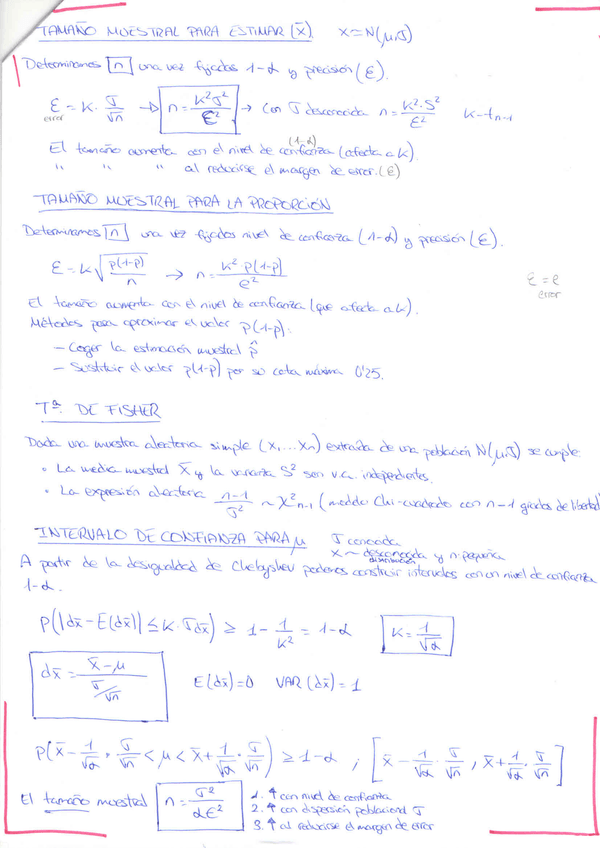 TAMAÑO MUESTRAL PARA ESTIMAR (x̄). X≡N(μ,σ)
Determinamos [n] una vez fijados 1-α y precisión (ε).
ε = k · σ/√n → n = k²σ²/ε² → Con σ desconocida n = k²·S²/ε² k - t n-1
error
El tamaño aumenta con el nivel de confianza (1-α) (afecta a k).
" " " al reducirse el margen de error. (ε)
TAMAÑO MUESTRAL PARA LA PROPORCIÓN
Determinamos [n] una vez fijados nivel de confianza (1-α) y precisión (ε).
ε = k √(p(1-p)/n) → n = k² p(1-p)/ε²
ε = e
error
El tamaño aumenta con el nivel de confianza (que afecta a k).
Métodos para aproximar el valor p(1-p):
- Coger la estimación muestral p̂
- Sustituir el valor p(1-p) por su cota máxima 0'25.
Tª. DE FISHER
Dada una muestra aleatoria simple (x₁...xn) extraída de una población N(μ,σ) se cumple
• La media muestral x̄ y la varianza S² son v.a. independientes.
• La expresión aleatoria n-1/σ² ~ χ²n-1 (modelo Chi-cuadrado con n-1 grados de libertad
INTERVALO DE CONFIANZA PARA μ σ conocida
X ~ desconocida y n pequeña
distribución
A partir de la desigualdad de Chebyshev podemos construir intervalos con un nivel de confianza
1-α.
P(|dx̄ - E(dx̄)| ≤ k·σdx̄) ≥ 1 - 1/k² = 1-α k = 1/√α
dx̄ = (x̄-μ)/(σ/√n) E(dx̄)=0 VAR(dx̄)=1
P(x̄ - 1/√α · σ/√n < μ < x̄ + 1/√α · σ/√n) ≥ 1-α ; [x̄ - 1/√α · σ/√n , x̄ + 1/√α · σ/√n]
El tamaño muestral n = σ²/αε² 1. ↑ con nivel de confianza
2. ↑ con dispersión poblacional σ
3. ↑ al reducirse el margen de error